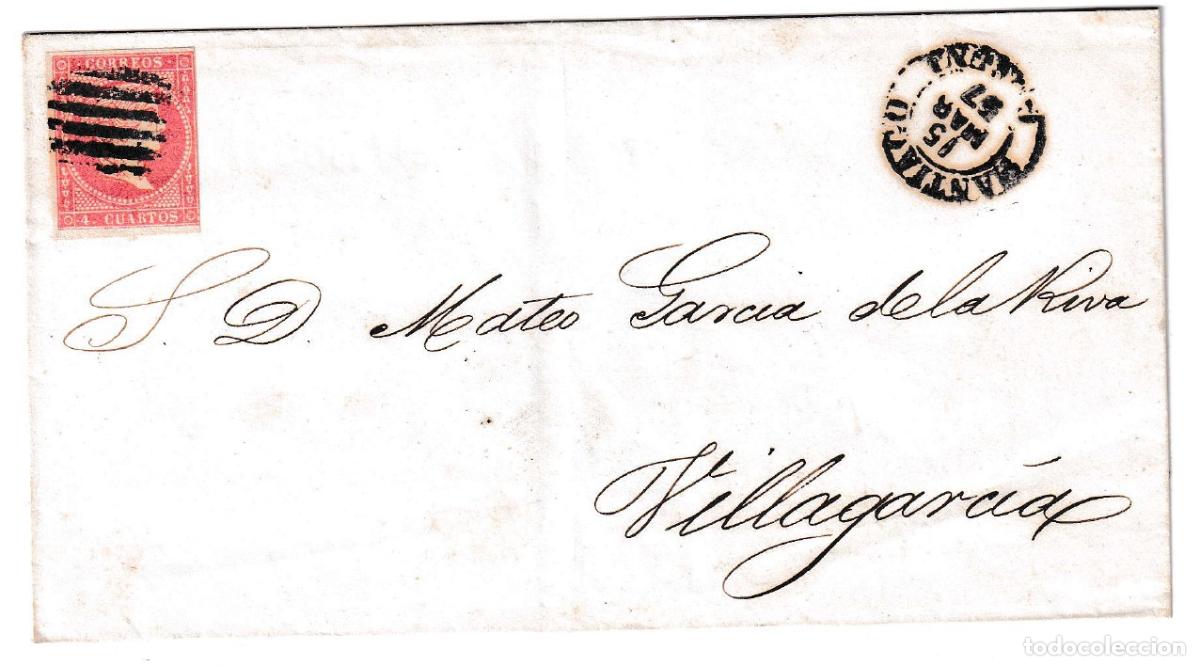 CORREOS
4. CUARTOS
SANTIAGO
15
MAR
57
S. D. Mateo Garcia de la Riva
Villagarcía
todocoleccion